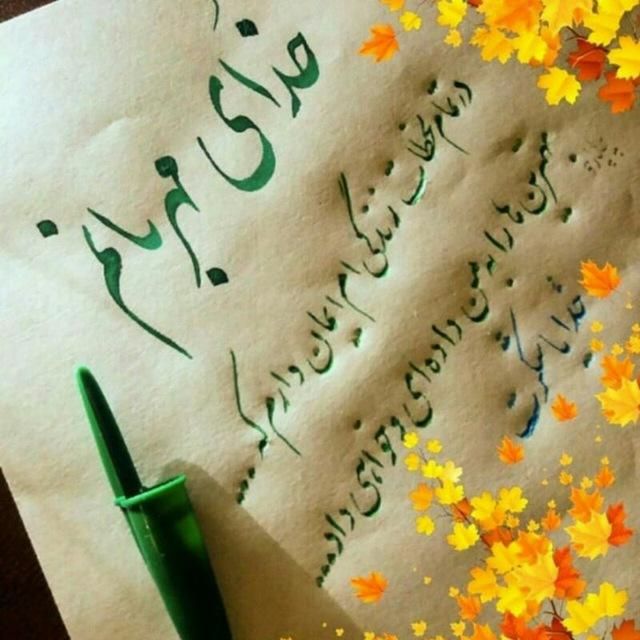 خدای مهربانم
در تمام لحظات زندگی ام ایمان دارم که
بهترین ها را به من داده‌ای و
خدایا شکرت